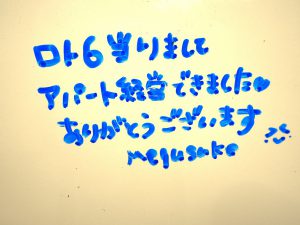 ロト6当りまして
アパート経営できました♥
ありがとうございます
megusuke